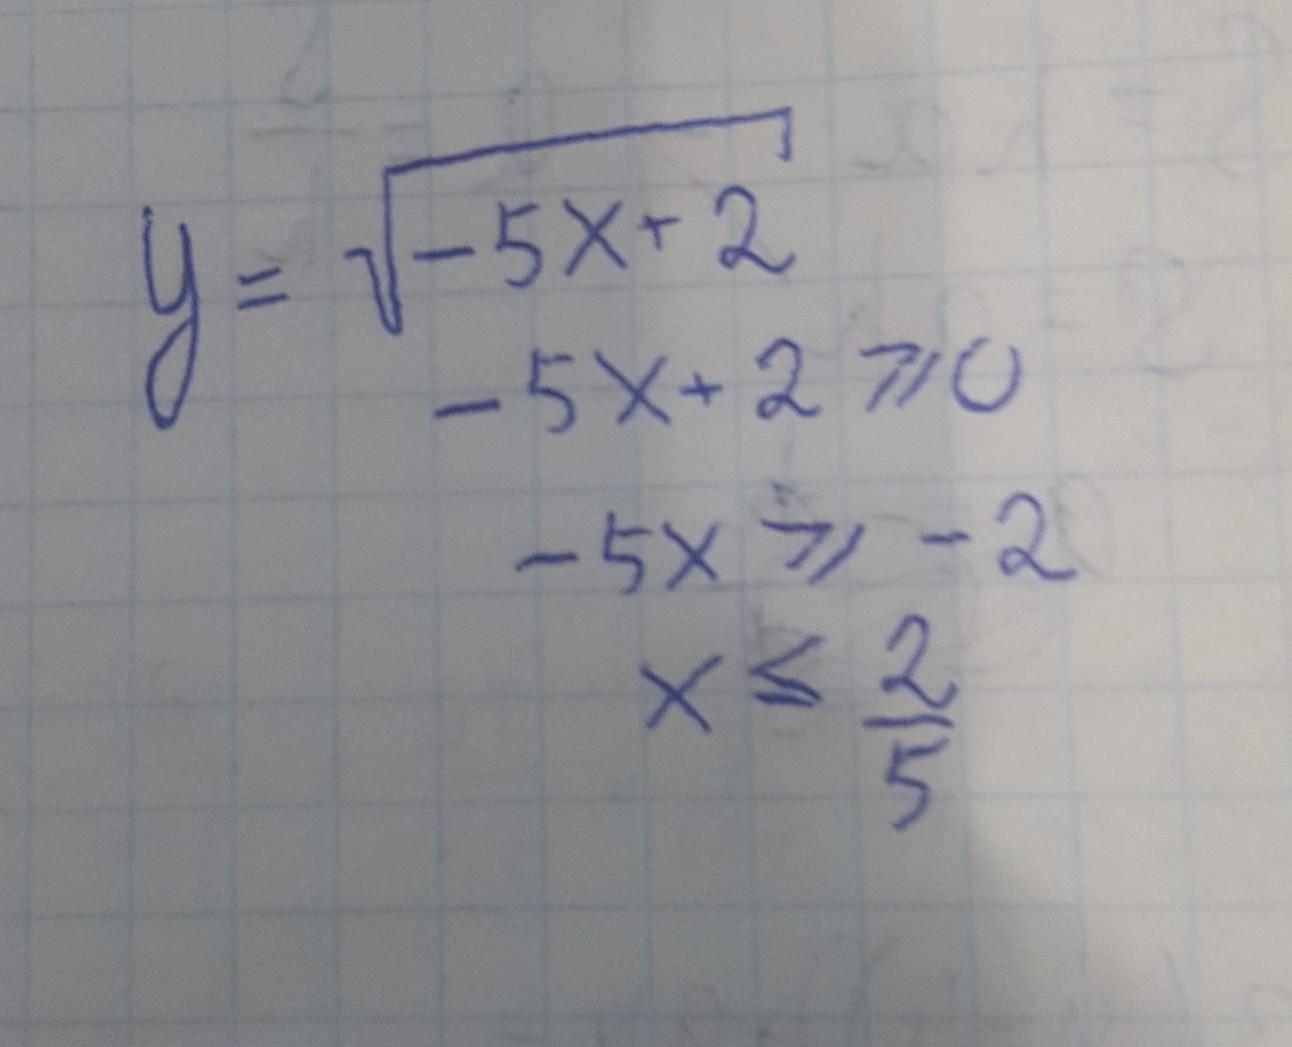 y = √-5x+2
-5x+2 ⩾ 0
-5x ⩾ -2
x ≤ 2/5